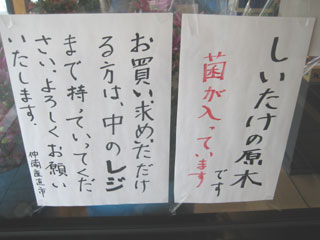 しいたけの原木
です
菌が入っています
お買い求めいただけ
る方は、中のレジ
まで持っていってくだ
さい。よろしくお願い
いたします。